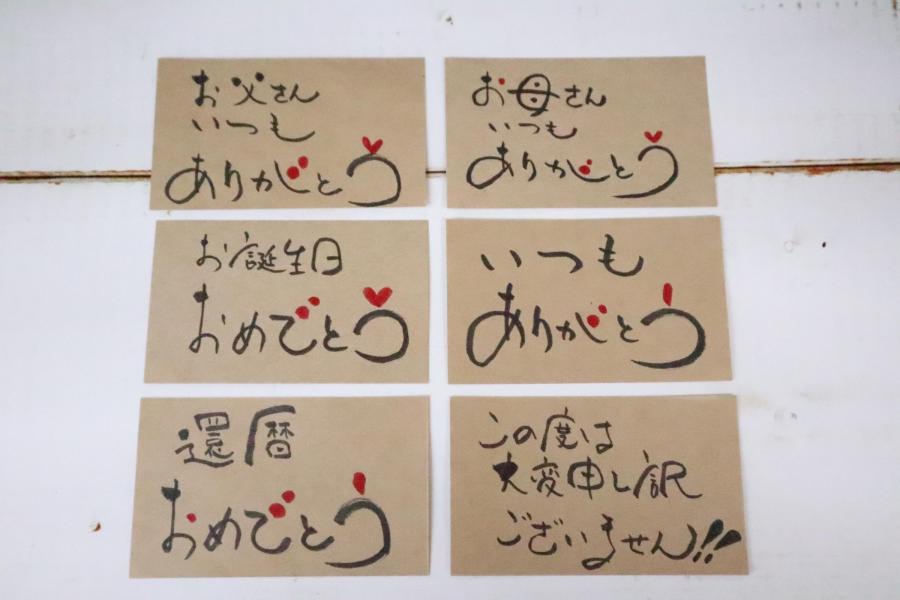 お父さん
いつも
ありがとう
お母さん
いつも
ありがとう
お誕生日
おめでとう
いつも
ありがとう
還暦
おめでとう
この度は
大変申し訳
ございません!!